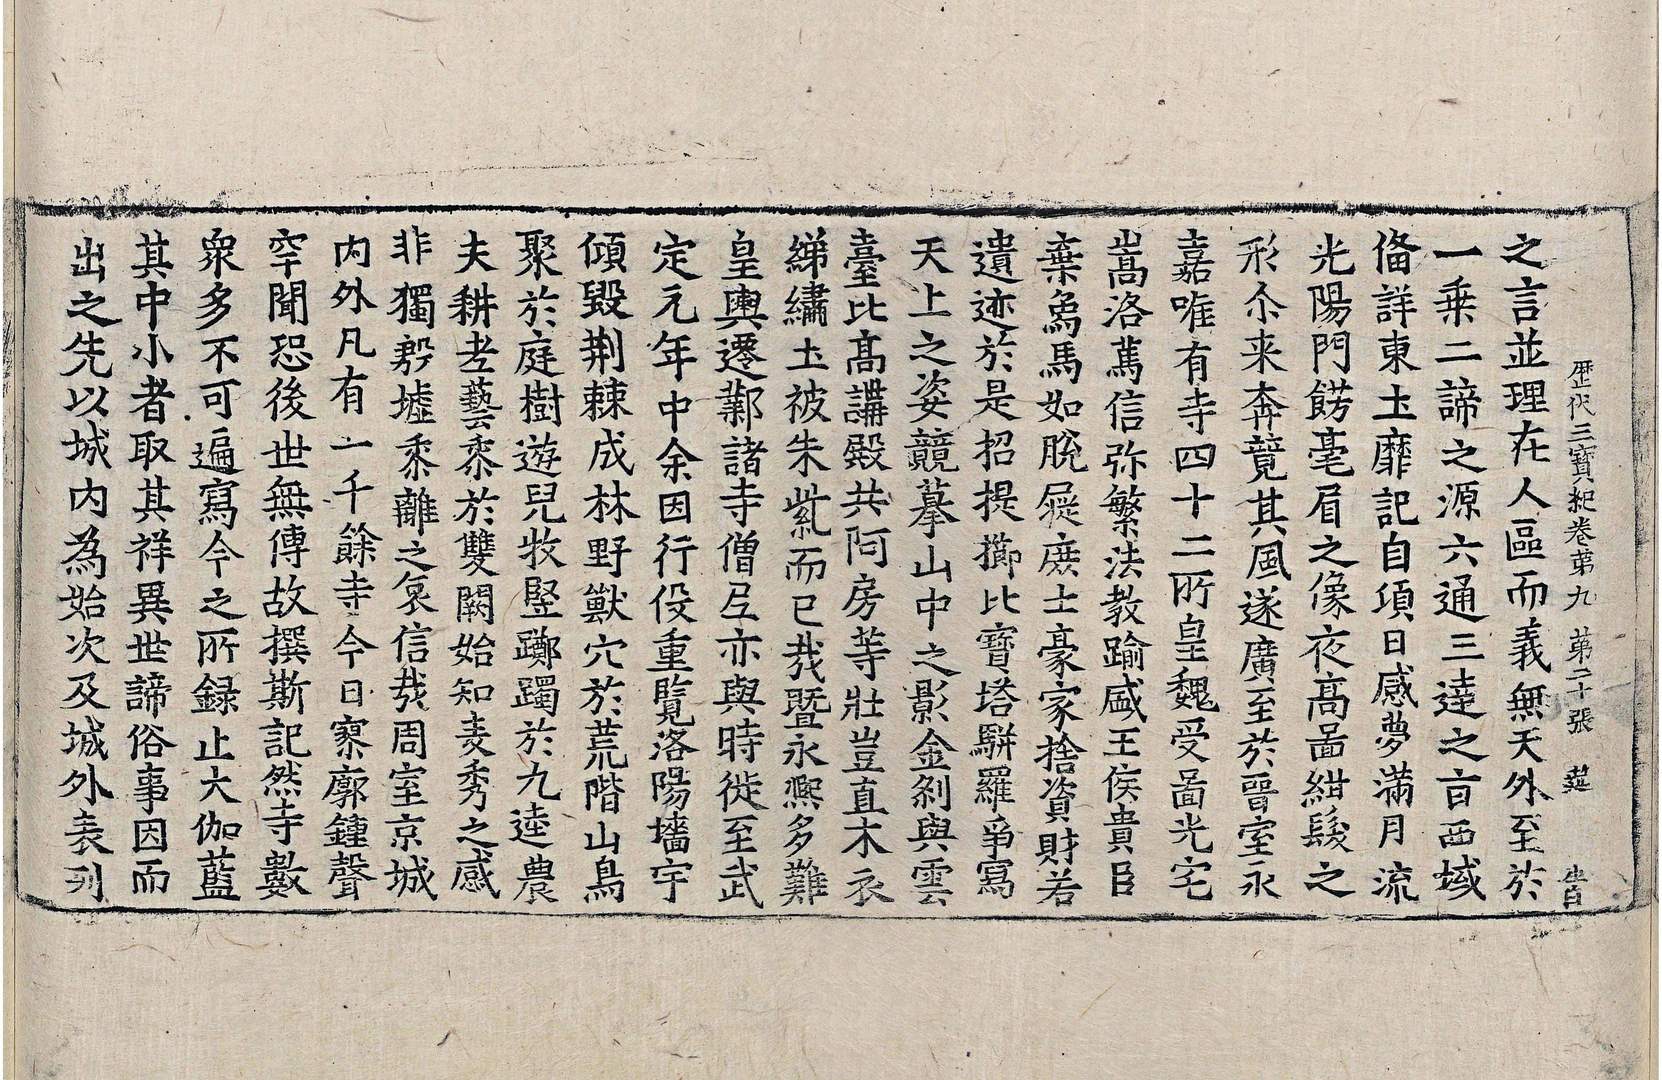 歷代三寶紀卷第九 第二十張
之言並理在人區而義無天外至於
一乗二諦之源六通三達之言西域
俻詳東土靡記自項日感夢滿月流
光陽門餝毫眉之像夜髙啚紺髮之
形尒来奔競其風遂廣至於晉室永
嘉唯有寺四十二所皇魏受啚光宅
嵩洛篤信弥繁法教踰盛王侯貴臣
棄象馬如脫屣庶士豪家捨資財若
遺迹於是招提櫛比寶塔駢羅爭寫
天上之姿競摹山中之影金剎與雲
臺比髙講殿共阿房等壯豈直木衣
綈繡土被朱紫而已哉暨永熈多難
皇輿遷鄴諸寺僧尼亦與時徙至武
定元年中余因行役重覽洛陽墻宇
傾毀荆棘成林野獸穴於荒階山鳥
聚於庭樹遊兒牧竪躑躅於九逵農
夫耕老藝黍於雙闕始知麦秀之感
非獨殷墟黍離之哀信㦲周室京城
内外凡有一千餘寺今日寮廓鍾聲
罕聞恐後世無傳故撰斯記然寺數
衆多不可遍寫今之所録止大伽藍
其中小者取其祥異世諦俗事因而
出之先以城内為始次及城外表列